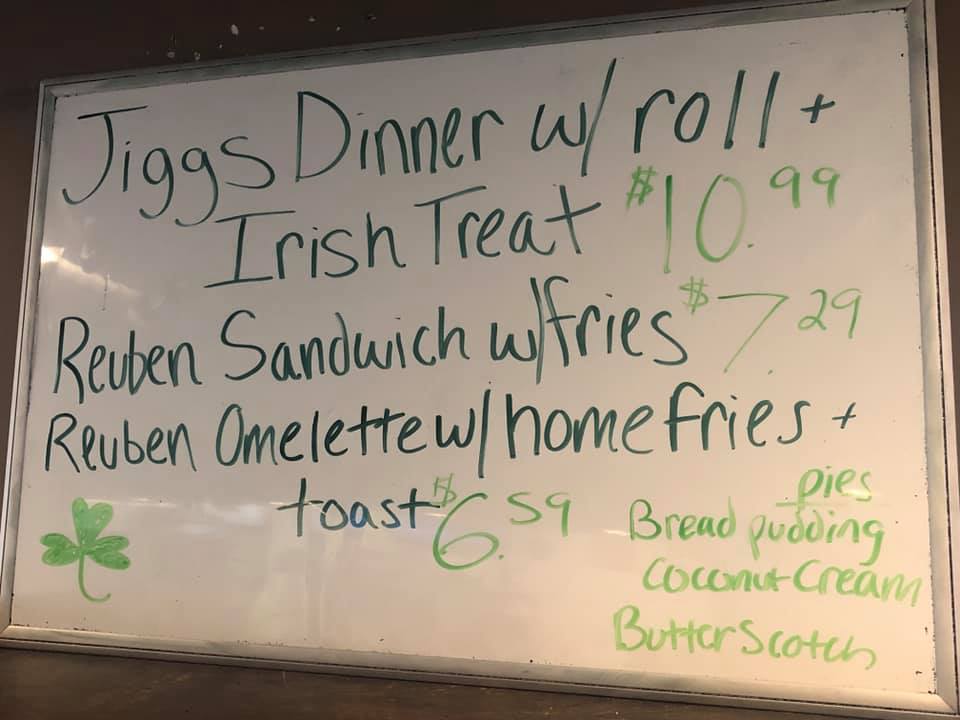 Jiggs Dinner w/ roll +
Irish Treat $10.99
Reuben Sandwich w/fries $7.29
Reuben Omelette w/ home fries +
toast $6.59
pies
Bread pudding
Coconut Cream
ButterScotch